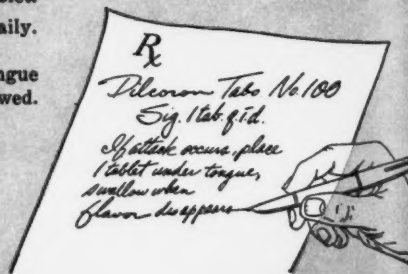 aily.
ngue
wed.
Rx
Dilcoron Tabs No. 100
Sig. 1 tab. q.i.d.
If attack occurs, place
1 tablet under tongue,
swallow when
flavor disappears